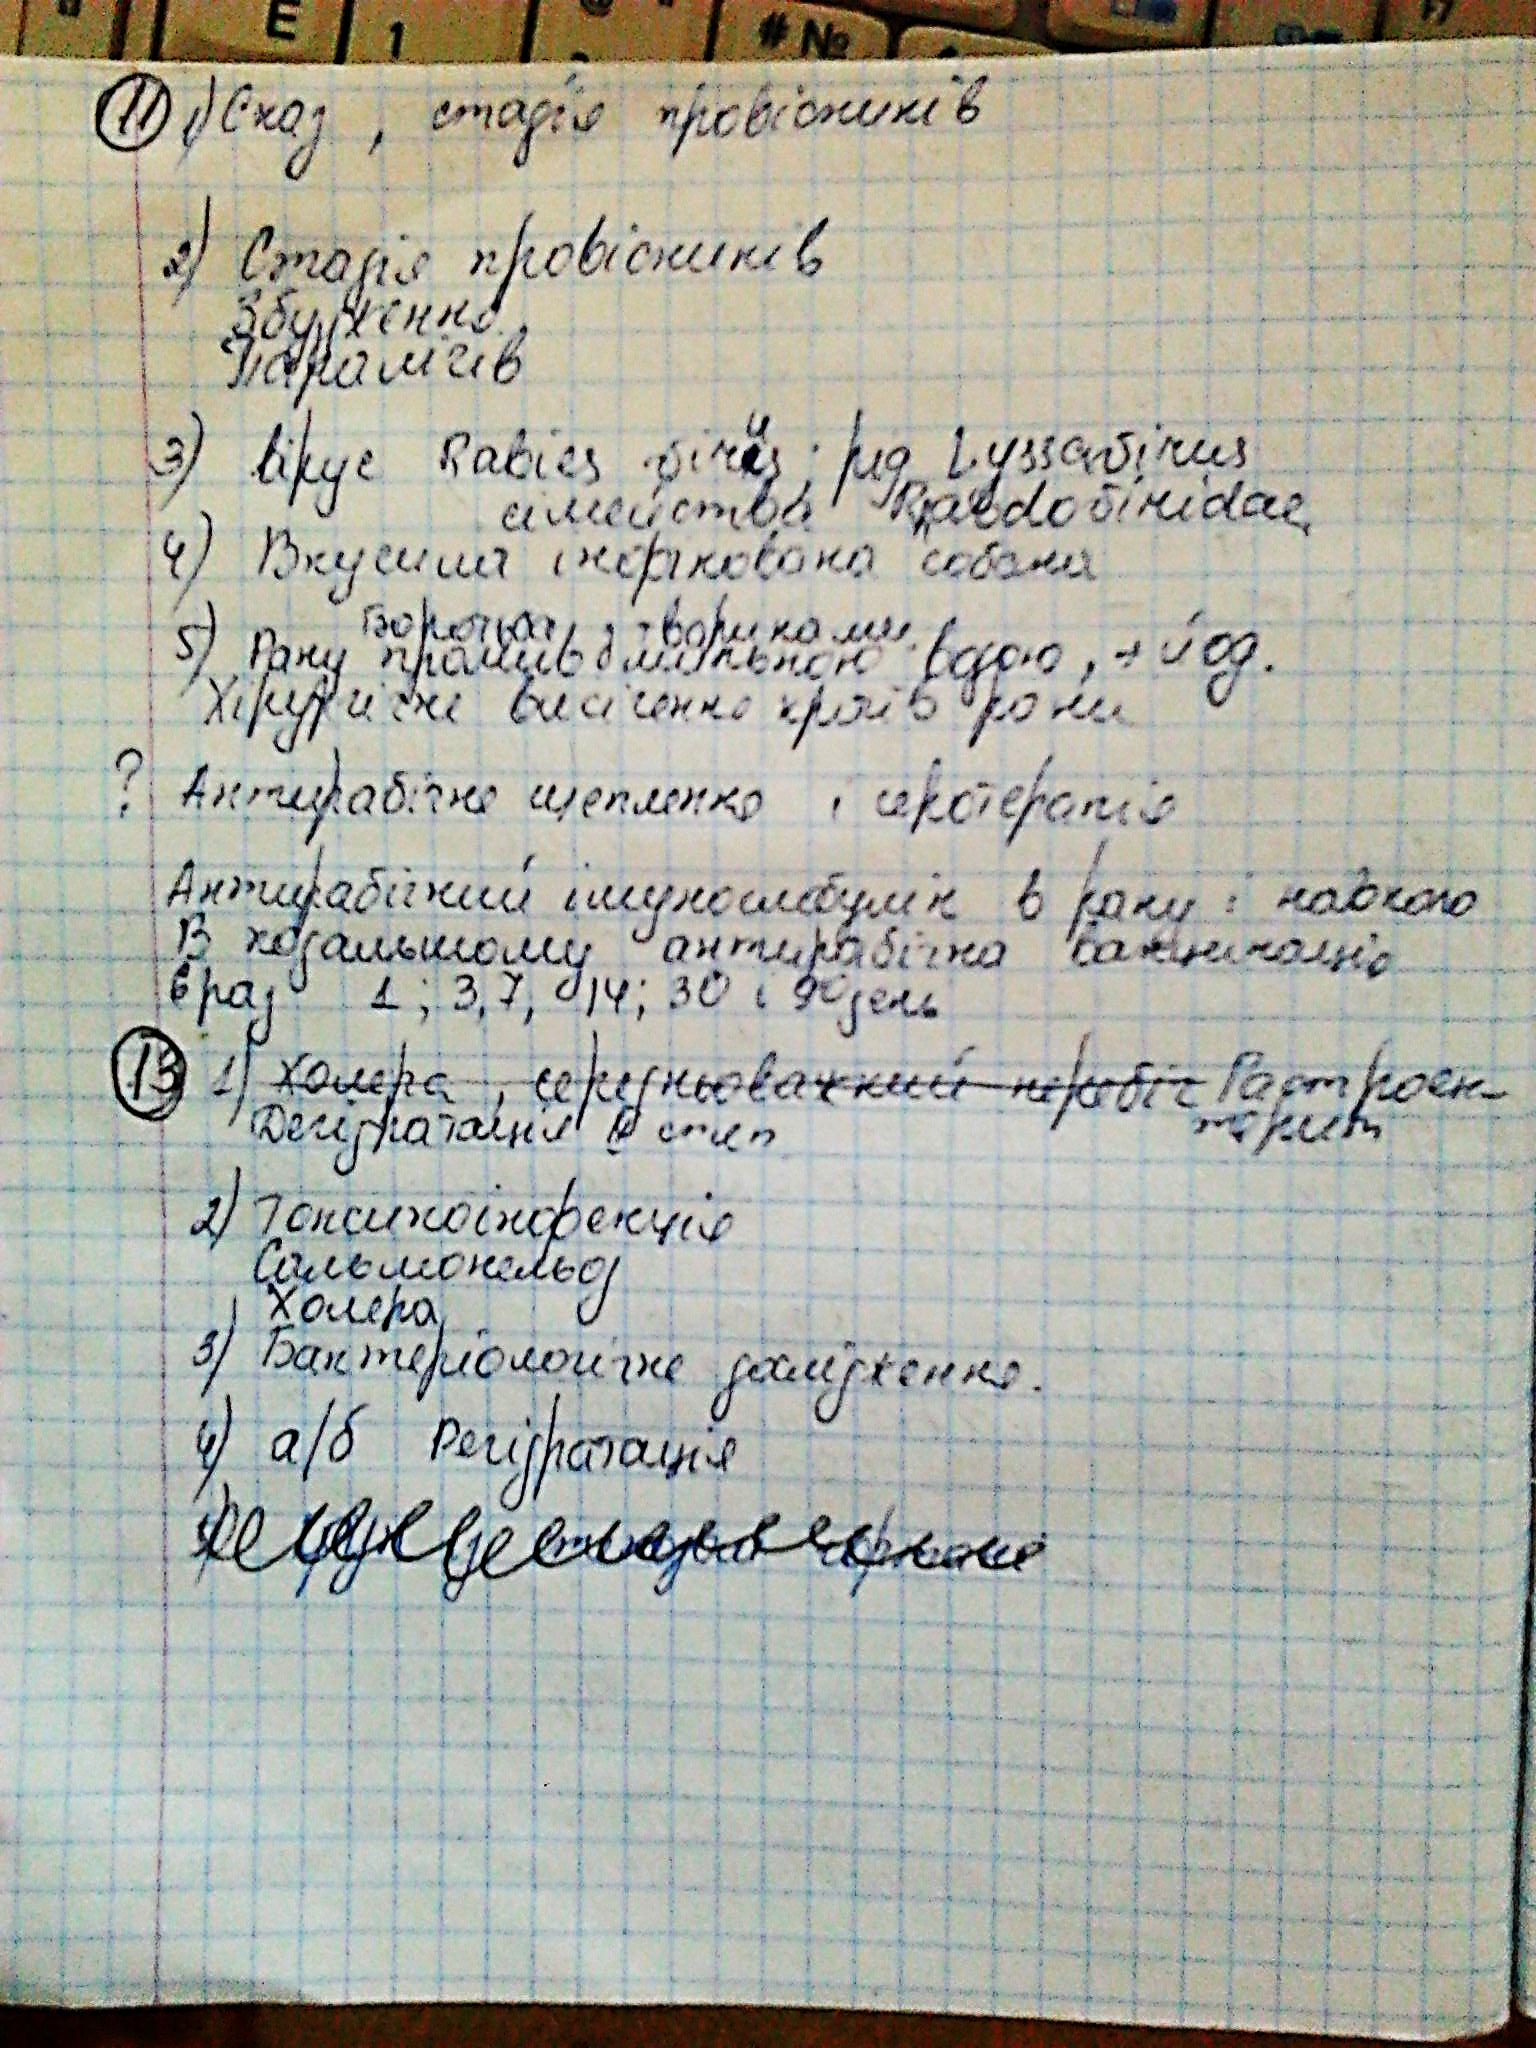 E 1 #№ F7
11 1) Сказ, стадія провісників
2) Стадія провісників
Збудження
Паралічів
3) вірус Rabies рід Lyssavirus
сімейства
4) Вкусила інфікована собака
Боротьба з тваринами
5) Рану промив мильною водою, + йод.
Хірургічне висічення країв рани
? Антирабічне щеплення і серотерапія
Антирабічний імуноглобулін в рану і навколо
В подальшому антирабічна вакцинація
6 раз 1; 3, 7, 14; 30 і 90 день
13 1) Холера, середньоважкий перебіг Гастроен-
Дегідратація ст терит
2) Токсикоінфекція
Сальмонельоз
Холера
3) Бактеріологічне дослідження.
4) а/б Регідратація